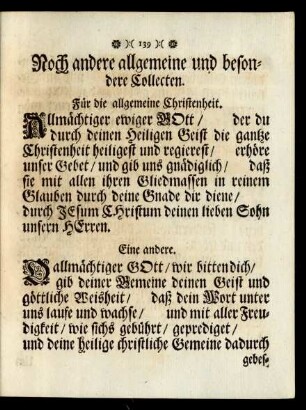 139
Noch andere allgemeine und beson-
dere Collecten.
Für die allgemeine Christenheit.
Allmächtiger ewiger GOtt/ der du
durch deinen Heiligen Geist die gantze
Christenheit heiligest und regierest/ erhöre
unser Gebet/ und gib uns gnädiglich/ daß
sie mit allen ihren Gliedmassen in reinem
Glauben durch deine Gnade dir diene/
durch JEsum CHristum deinen lieben Sohn
unsern HErren.
Eine andere.
O allmächtiger GOtt/ wir bitten dich/
gib deiner Gemeine deinen Geist und
göttliche Weisheit/ daß dein Wort unter
uns laufe und wachse/ und mit aller Freu-
digkeit/ wie sichs gebührt/ geprediget/
und deine heilige christliche Gemeine dadurch
gebes-